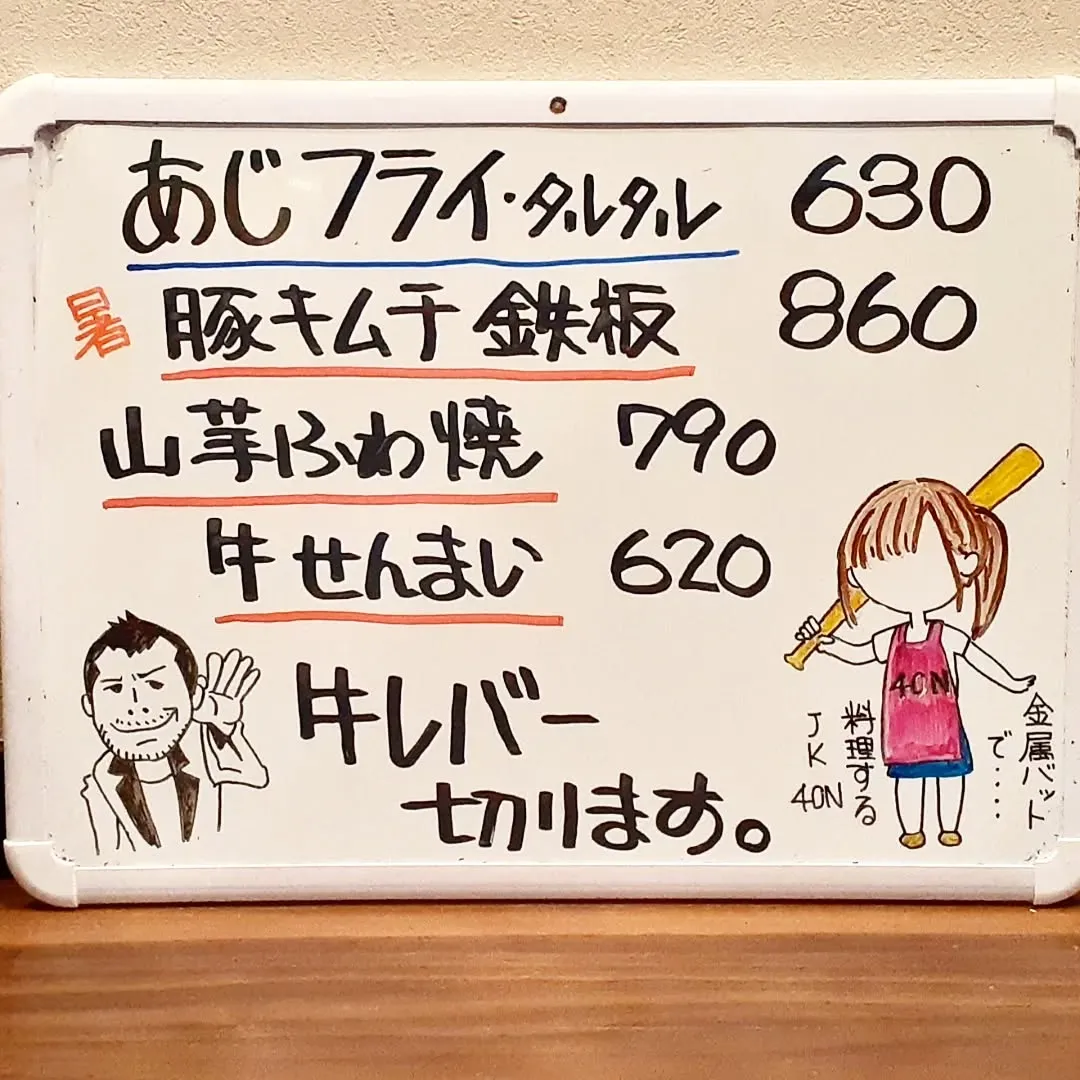 あじフライ・タルタル 630
暑 豚キムチ鉄板 860
山芋ふわ焼 790
牛せんまい 620
牛レバー
切ります。
40N
金属バット
で・・・・
料理する
JK
40N